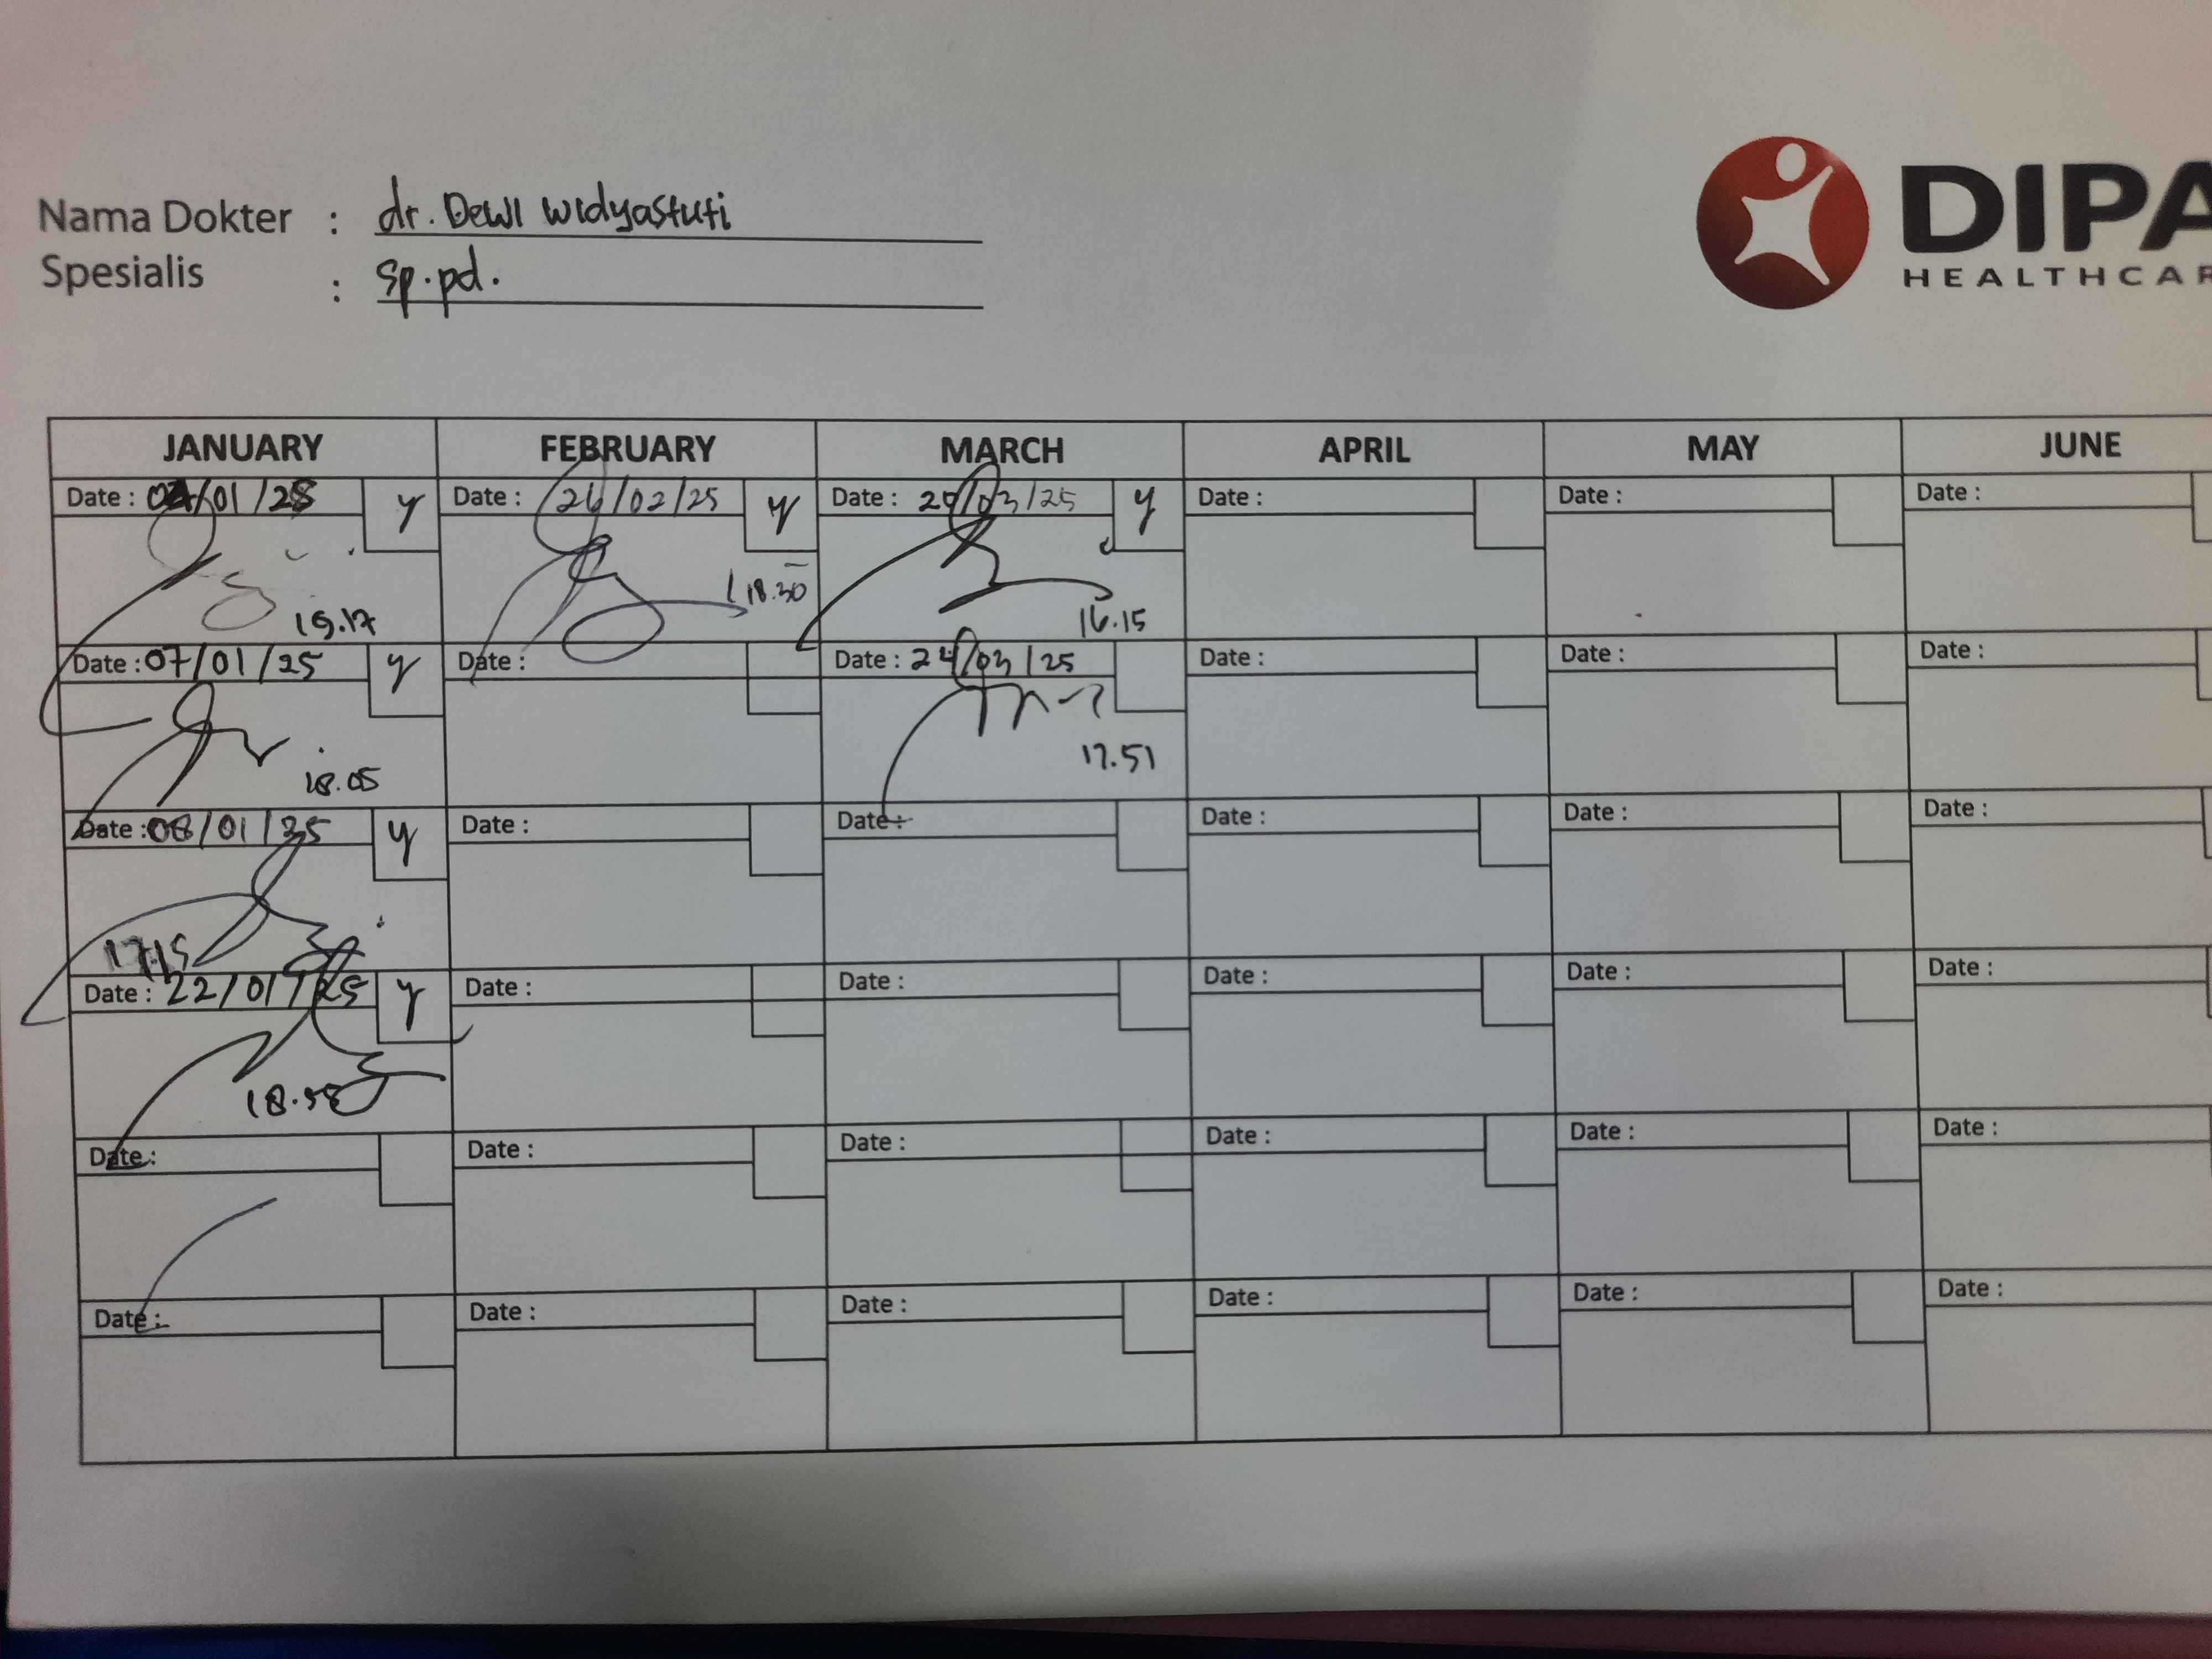 Nama Dokter : dr. Dewi Widyastuti
Spesialis : Sp.pd.
DIPA
HEALTHCAR
JANUARY FEBRUARY MARCH APRIL MAY JUNE
Date : /01/25 y Date : 26/02/25 y Date : /03/25 y Date : Date : Date :
18.30 16.15
Date : 07/01/25 y Date : Date : 24/03/25 Date : Date : Date :
18.05 17.51
Date : 08/01/25 y Date : Date : Date : Date : Date :
17.15
Date : 22/01/25 y Date : Date : Date : Date : Date :
Date : Date : Date : Date : Date : Date :
Date : Date : Date : Date : Date : Date :